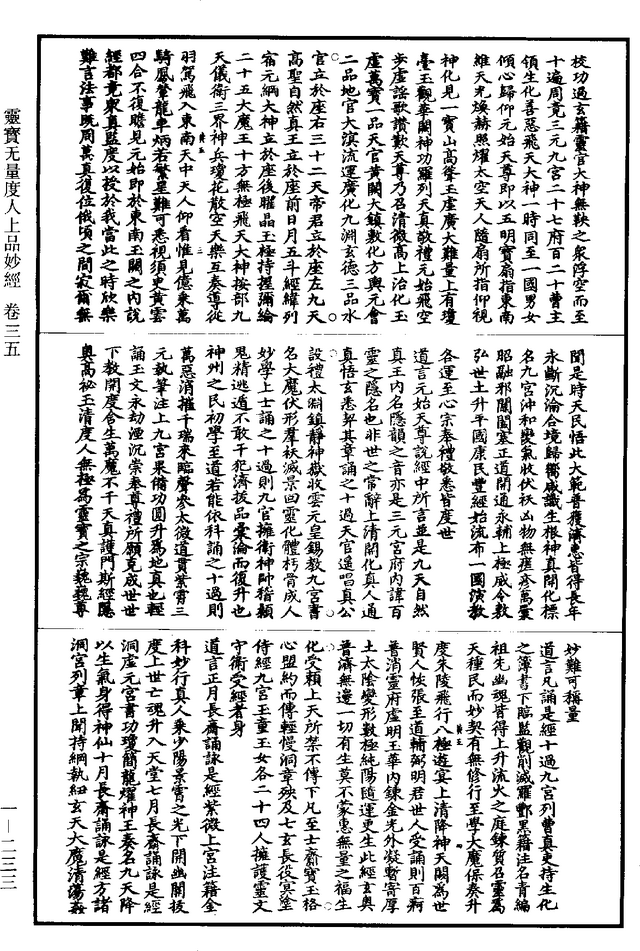 校功過玄籍靈官大神無鞅之衆浮空而至
十遍周竟三元九宮二十七府百二十曹主
領生化善惡飛天大神一時同至一國男女
傾心歸仰元始天尊即以五明寶扇指東南
維天光煥赫照燿太空天人隨扇所指仰視
神化見一寶山高峯玉虛廣大難量上有瓊
臺玉觀華闕神功羅列天真敬禮元始飛空
步虛謠歌讚歎天尊乃召清微高上治化玉
虛萬寶一品天官黃闕大鎮敷化方輿元會
二品地官大演流運廣化九淵玄德三品水
官立於座右三十二天帝君立於座左九天
高聖自然真王立於座前日月五斗經緯列
宿元綱大神立於座後曜晶玉極持握彌綸
二十五大魔王十方無極飛天大神按部九
天儀衛三界神兵瓊花散空天樂互奏導從
羽駕飛入東南天中天人仰看惟見億乘萬
騎鳳輦龍車炳若繁星難可悉視須臾黃雲
四合不復瞻見元始即於東南玉闕之內說
經都竟衆真監度以授於我當此之時欣樂
難言法事既周萬真復位俄頃之間寂爾無
聞是時天民悟此大範普獲濟惠皆得長年
永斷沉淪合境歸獨咸識生根神真開化標
名九宮沖和變氣收伏袄凶物無疵疹萬彙
昭融邪闇闔塞正道開通永輔上極咸令教
弘世土升平國康民豐經始流布一國演教
各運至心宗奉禮敬悉皆度世
道言元始天尊說經中所言並是九天自然
真王內名隱韻之音亦是三元宮府內諱百
靈之隱名也非世之常辭上清開化真人通
真悟玄悉契其章誦之十過天官遥唱真公
設禮太淵鎮静神嶽收雲元皇錫教九宮書
名大魔伏形羣袄滅景回靈化體朽骨成人
妙學上士誦之十過則九官擁衛神帥稽顙
鬼精逃遁不敢干犯濟拔品彙淪而復升也
神州之民初學至道若能依科誦之十過則
萬惡消摧千瑞來臨聲參太微道貫紫霄三
元執筆注上九宮果備功圓升爲地真也輕
誦玉文永劫湮沉崇奉尊禮所願克成世世
下教開度含生萬魔不干天真護門斯經隱
奥高祕玉清度人無極爲靈寶之宗巍巍尊
妙難可稱量
道言凡誦是經十過九宮列曹真吏持生化
之簿書下臨監觀削滅羅酆黑籍注名青編
祖先幽魂皆得上升流火之庭鍊質召靈爲
天種民而妙契有無修行至學大魔保奏升
度朱陵飛行八極遊宴上清降神天闕爲世
賢人恢張至道輔弼明君世人受誦則百痾
普消靈府虛明玉華內鍊金光外凝暫寄厚
土太陰變形數極純陽隨運更生此經玄奥
普濟無邊一切有生莫不蒙惠無量之福生
化受賴上天所禁不傳下凡至士齋寶玉格
心盟約而傳輕慢洞章殃及七玄長役冥塗
侍經九宮玉童玉女各二十四人擁護靈文
守衛受經者身
道言正月長齋誦詠是經紫微上宮注籍金
科妙行真人乘少陽景霄之光下開幽關拔
度上世亡魂升入天堂七月長齋誦詠是經
洞虛元宮書功瓊簡龍燿神王奏名九天降
以生氣身得神仙十月長齋誦詠是經方諸
洞宮列章上聞持綱執紐玄天大魔清蕩姦
靈寶无量度人上品妙經 卷三五
一—二三三